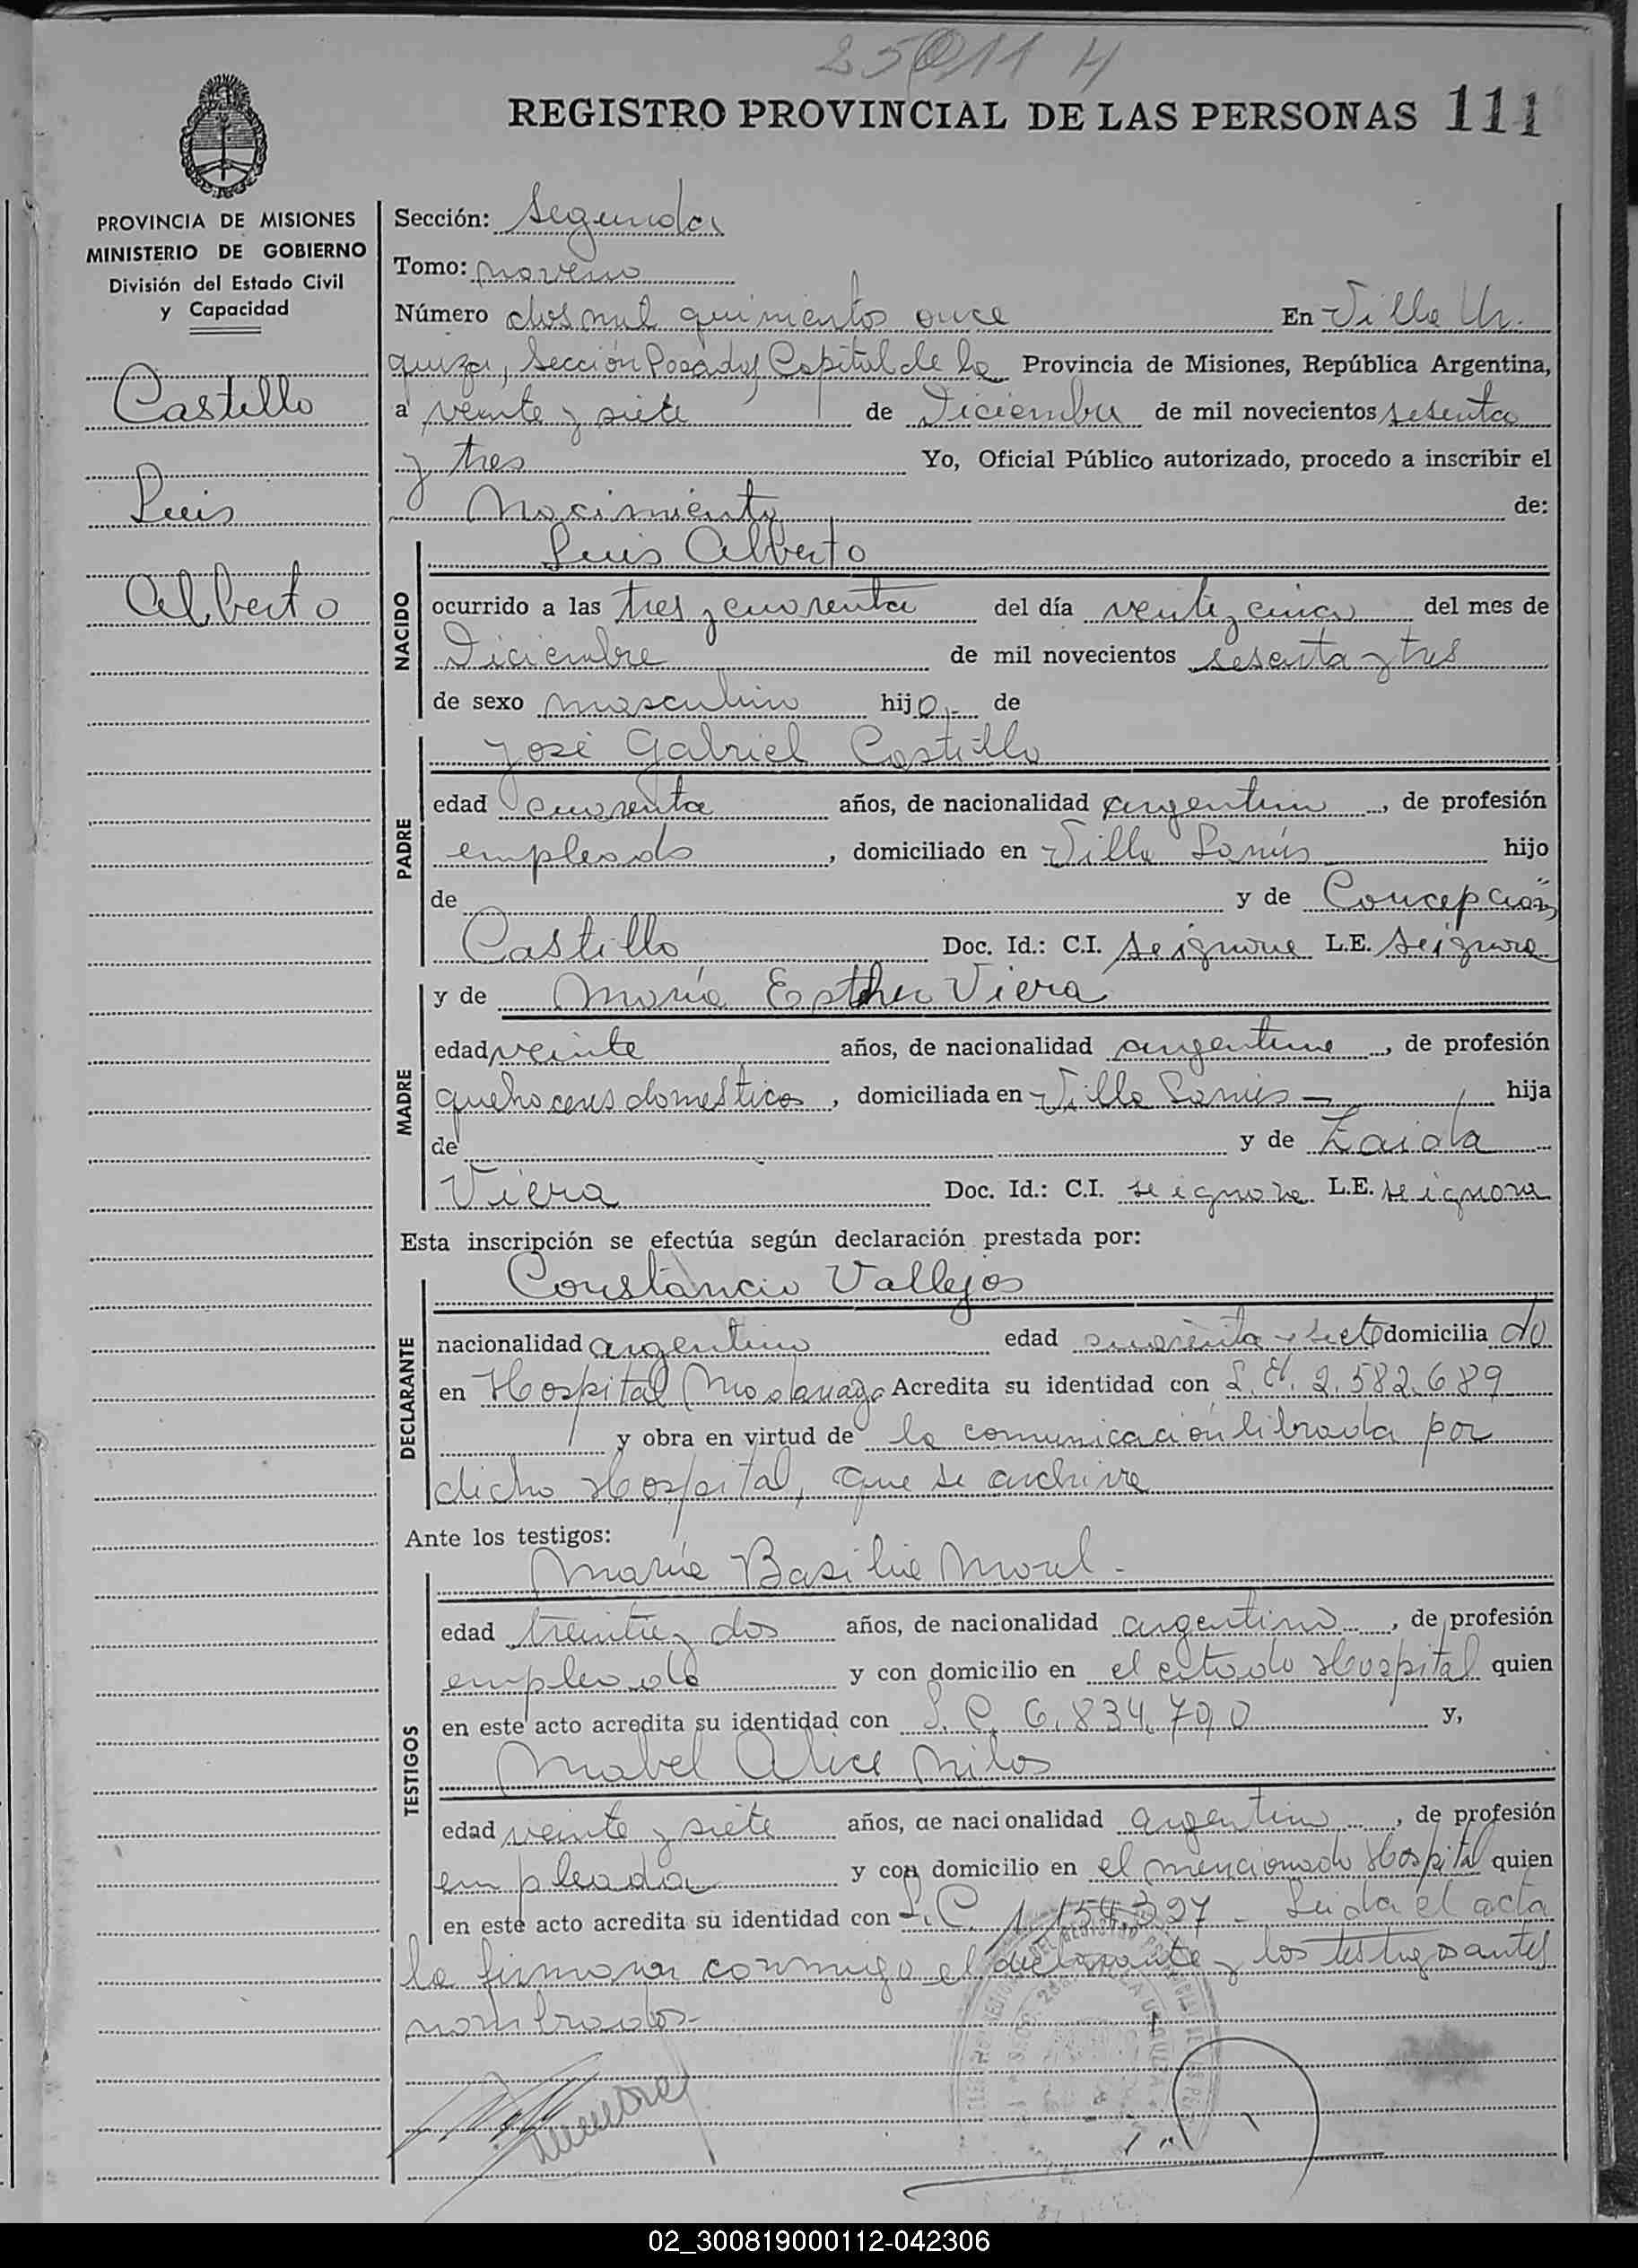 25011 H
REGISTRO PROVINCIAL DE LAS PERSONAS 111
PROVINCIA DE MISIONES
MINISTERIO DE GOBIERNO
División del Estado Civil
y Capacidad
Castillo
Luis
Alberto
Sección: Segunda
Tomo: noveno
Número dos mil quinientos once En Villa Ur-
quiza, Sección Posadas Capital de la Provincia de Misiones, República Argentina,
a veinte y siete de Diciembre de mil novecientos sesenta
y tres Yo, Oficial Público autorizado, procedo a inscribir el
Nacimiento de:
Luis Alberto
NACIDO
ocurrido a las tres y cuarenta del día veinte y cinco del mes de
Diciembre de mil novecientos sesenta y tres
de sexo masculino hijo.- de
José Gabriel Castillo
PADRE
edad cuarenta años, de nacionalidad argentino, de profesión
empleado, domiciliado en Villa Lanús hijo
de y de Concepción
Castillo Doc. Id.: C.I. se ignora L.E. se ignora
MADRE
y de María Esther Viera
edad veinte años, de nacionalidad argentina, de profesión
quehaceres domésticos, domiciliada en Villa Lanús — hija
de y de Zaida
Viera Doc. Id.: C.I. se ignora L.E. se ignora
Esta inscripción se efectúa según declaración prestada por:
Constancio Vallejos
DECLARANTE
nacionalidad argentino edad cuarenta y siete domicilia do
en Hospital Madariaga Acredita su identidad con L.E. 2.582.689
y obra en virtud de la comunicación librada por
dicho Hospital, que se archiva
Ante los testigos:
María Basilia Morel -
TESTIGOS
edad treinta y dos años, de nacionalidad argentina, de profesión
empleada y con domicilio en el citado Hospital quien
en este acto acredita su identidad con L.C. 6.834.790 y,
Mabel Alice Milos
edad veinte y siete años, de nacionalidad argentina, de profesión
empleada y con domicilio en el mencionado Hospital quien
en este acto acredita su identidad con L.C. 1.154.327 - Leida el acta
la firman conmigo el declarante y los testigos antes
nombrados.-
02_300819000112-042306